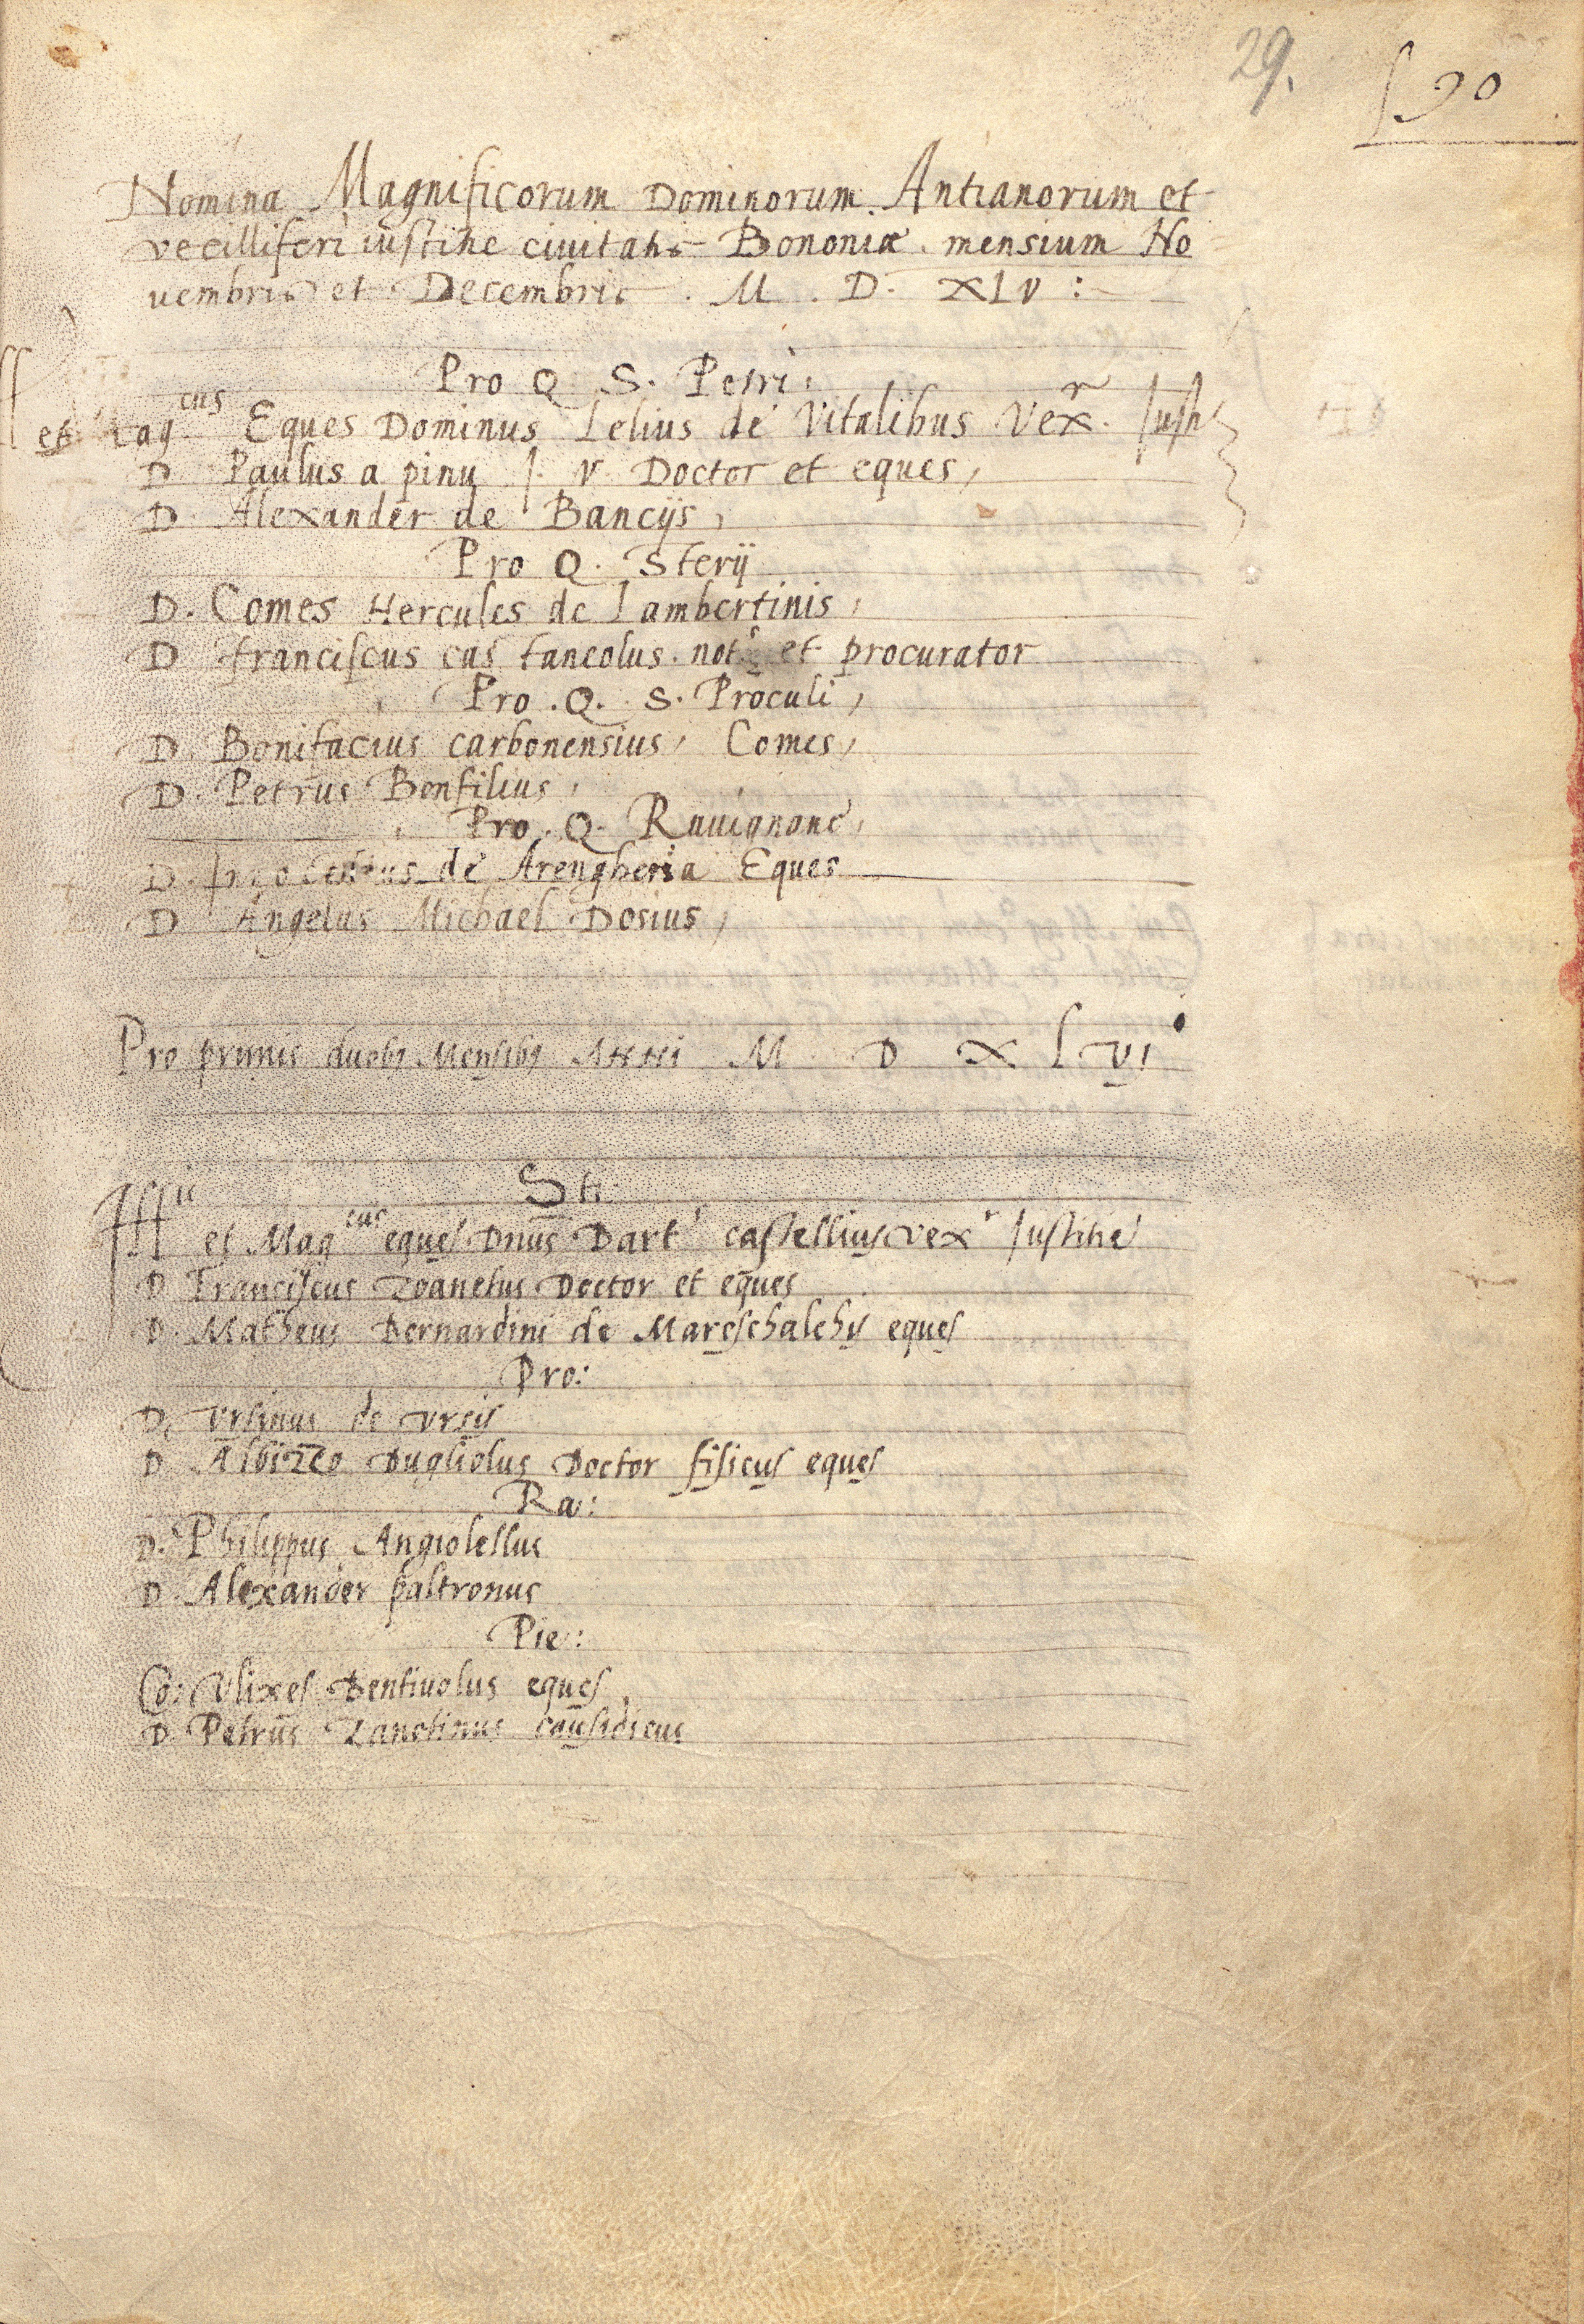 29.
90
Nomina Magnificorum Dominorum Antianorum et
vecilliferi iustitie civitatis Bononiæ mensium No
uembris et Decembris . M . D . XLV :
Pro Q S. Petri
et Mag cus Eques Dominus Lelius de Vitalibus Vex r. Iusti
D Paulus a pinu J. V Doctor et eques,
D. Alexander de Bancijs,
Pro Q. Sterij
D. Comes Hercules de Lambertinis,
D franciscus castaneolus. not s et procurator
Pro . Q. S. Proculi,
D. Bonifacius carbonensius, Comes,
D. Petrus Bonfilius,
Pro . Q. Rauignane,
D. de Arengheria Eques
D Angelus Michael Dosius,
Pro primis duobz Mensibz Anni M D X L VI
Sti
Ill ris et Mag cus eques Dnus Bart s castellius vex r Iustitie
D Franciscus Zoanetus Doctor et eques
D. Matheus Bernardini de Mareschalchis eques
Pro:
D. Vrsinus de vrsis
D. Albizeo Dugliolus Doctor fisicus eques
Ra:
D. Philippus Angiolellus
D. Alexander paltronus
Pie:
Co: Vlixes Bentiuolus eques
D. Petrus Zanetinus causidicus